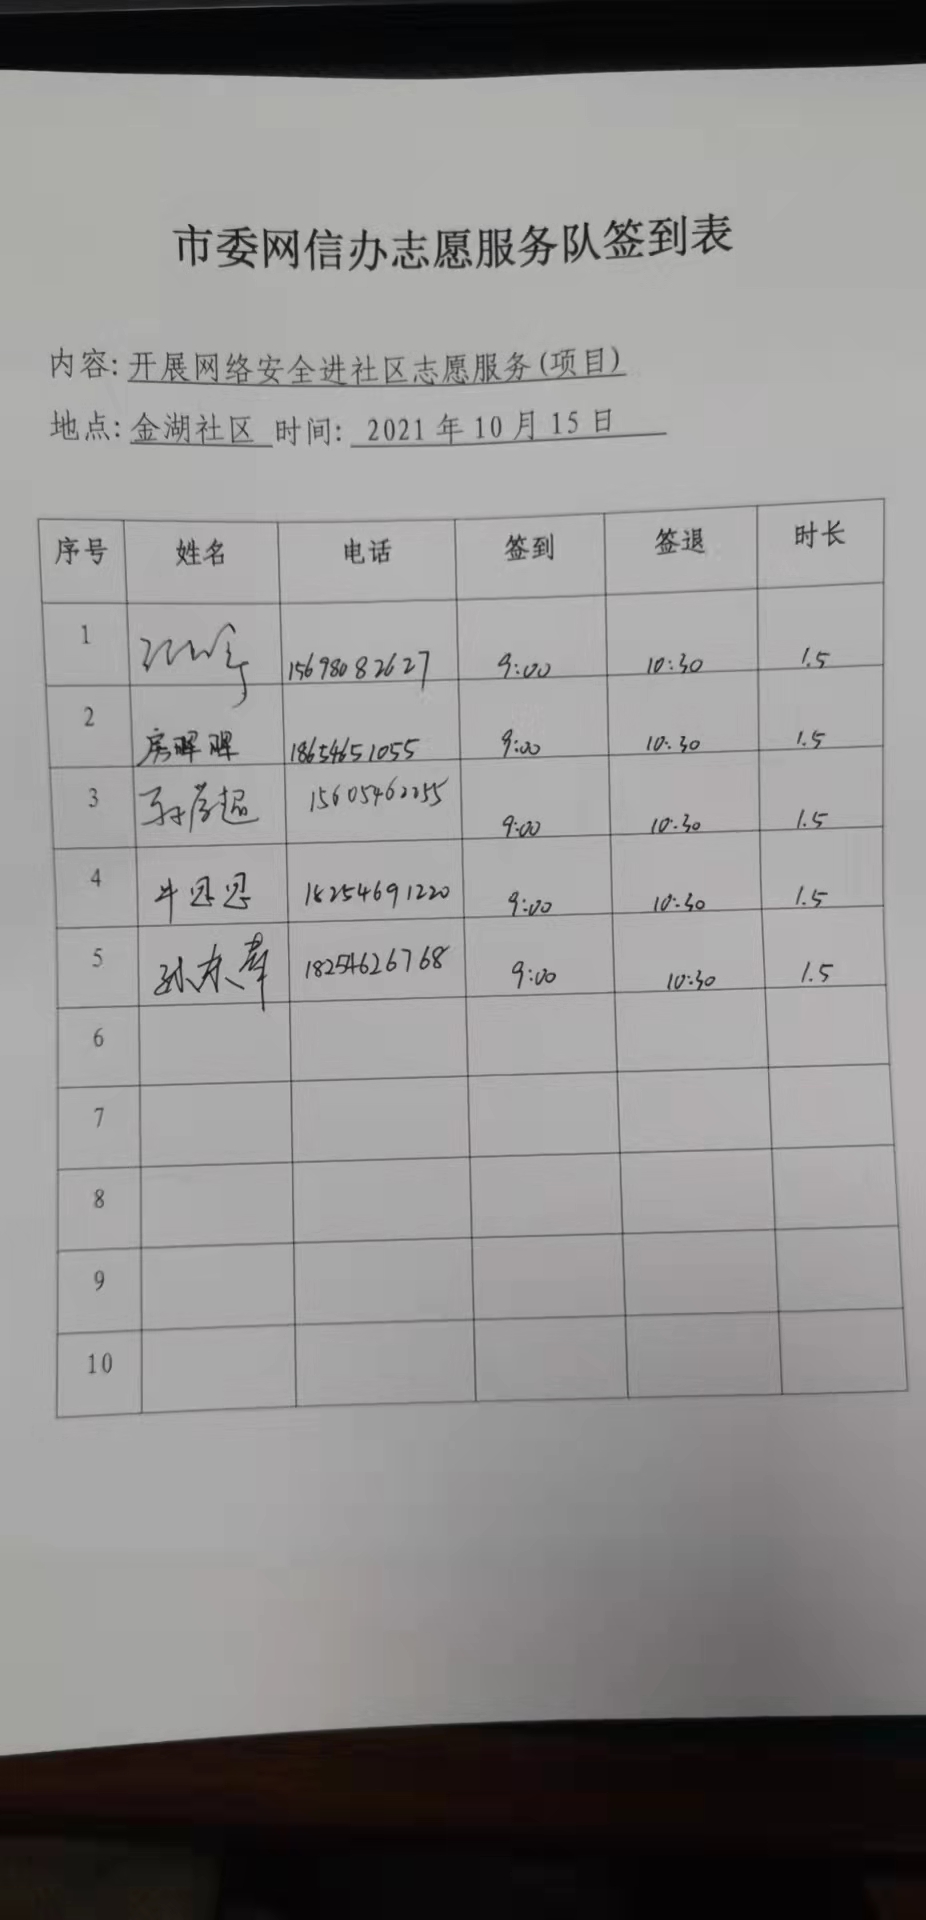 市委网信办志愿服务队签到表
内容: 开展网络安全进社区志愿服务(项目)
地点: 金湖社区 时间: 2021年10月15日
序号 姓名 电话 签到 签退 时长
1 15698082627 9:00 10:30 1.5
2 房晖晖 18654651055 9:00 10:30 1.5
3 15605462255 9:00 10:30 1.5
4 牛恩恩 18254691220 9:00 10:30 1.5
5 18254626768 9:00 10:30 1.5
6
7
8
9
10